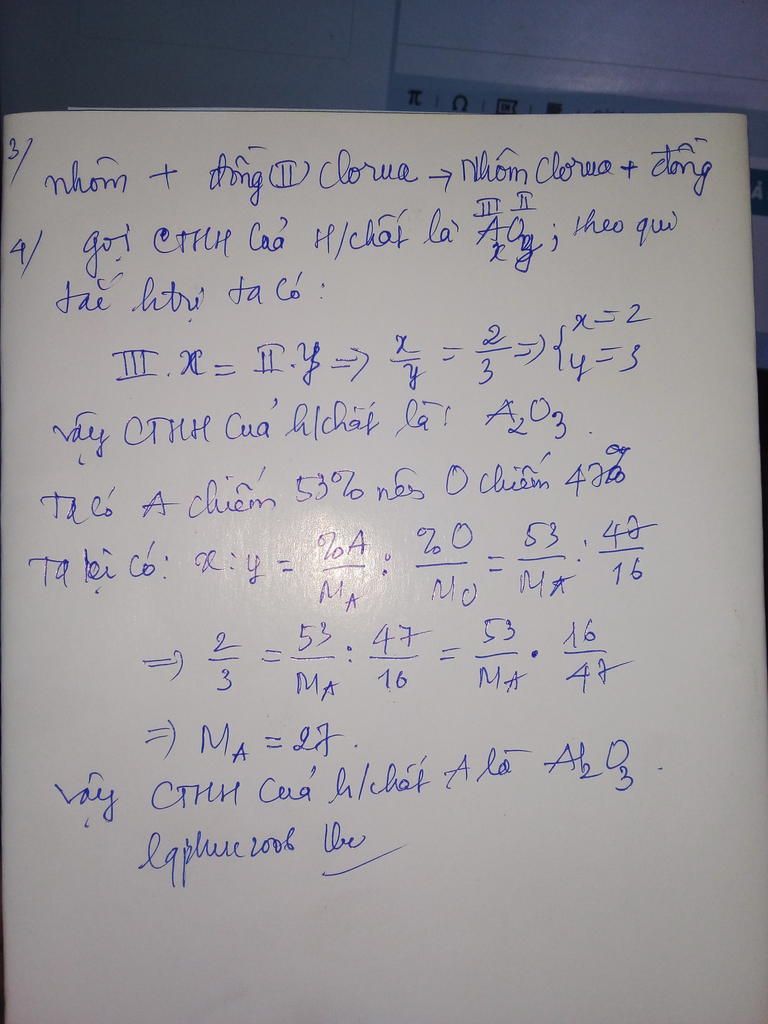 3/ nhôm + đồng(II) clorua → Nhôm clorua + đồng
4/ gọi CTHH của H/chất là AxOy (III II); theo qui
tắc htrị ta có:
III.x = II.y => x/y = 2/3 => { x=2 y=3
vậy CTHH của h/chất là: A₂O₃.
Ta có A chiếm 53% nên O chiếm 47%
Ta lại có: x:y = %A/MA : %O/MO = 53/MA : 47/16
=> 2/3 = 53/MA : 47/16 = 53/MA . 16/47
=> MA = 27.
vậy CTHH của h/chất A là Al₂O₃.
lqphuc2006
π Ω